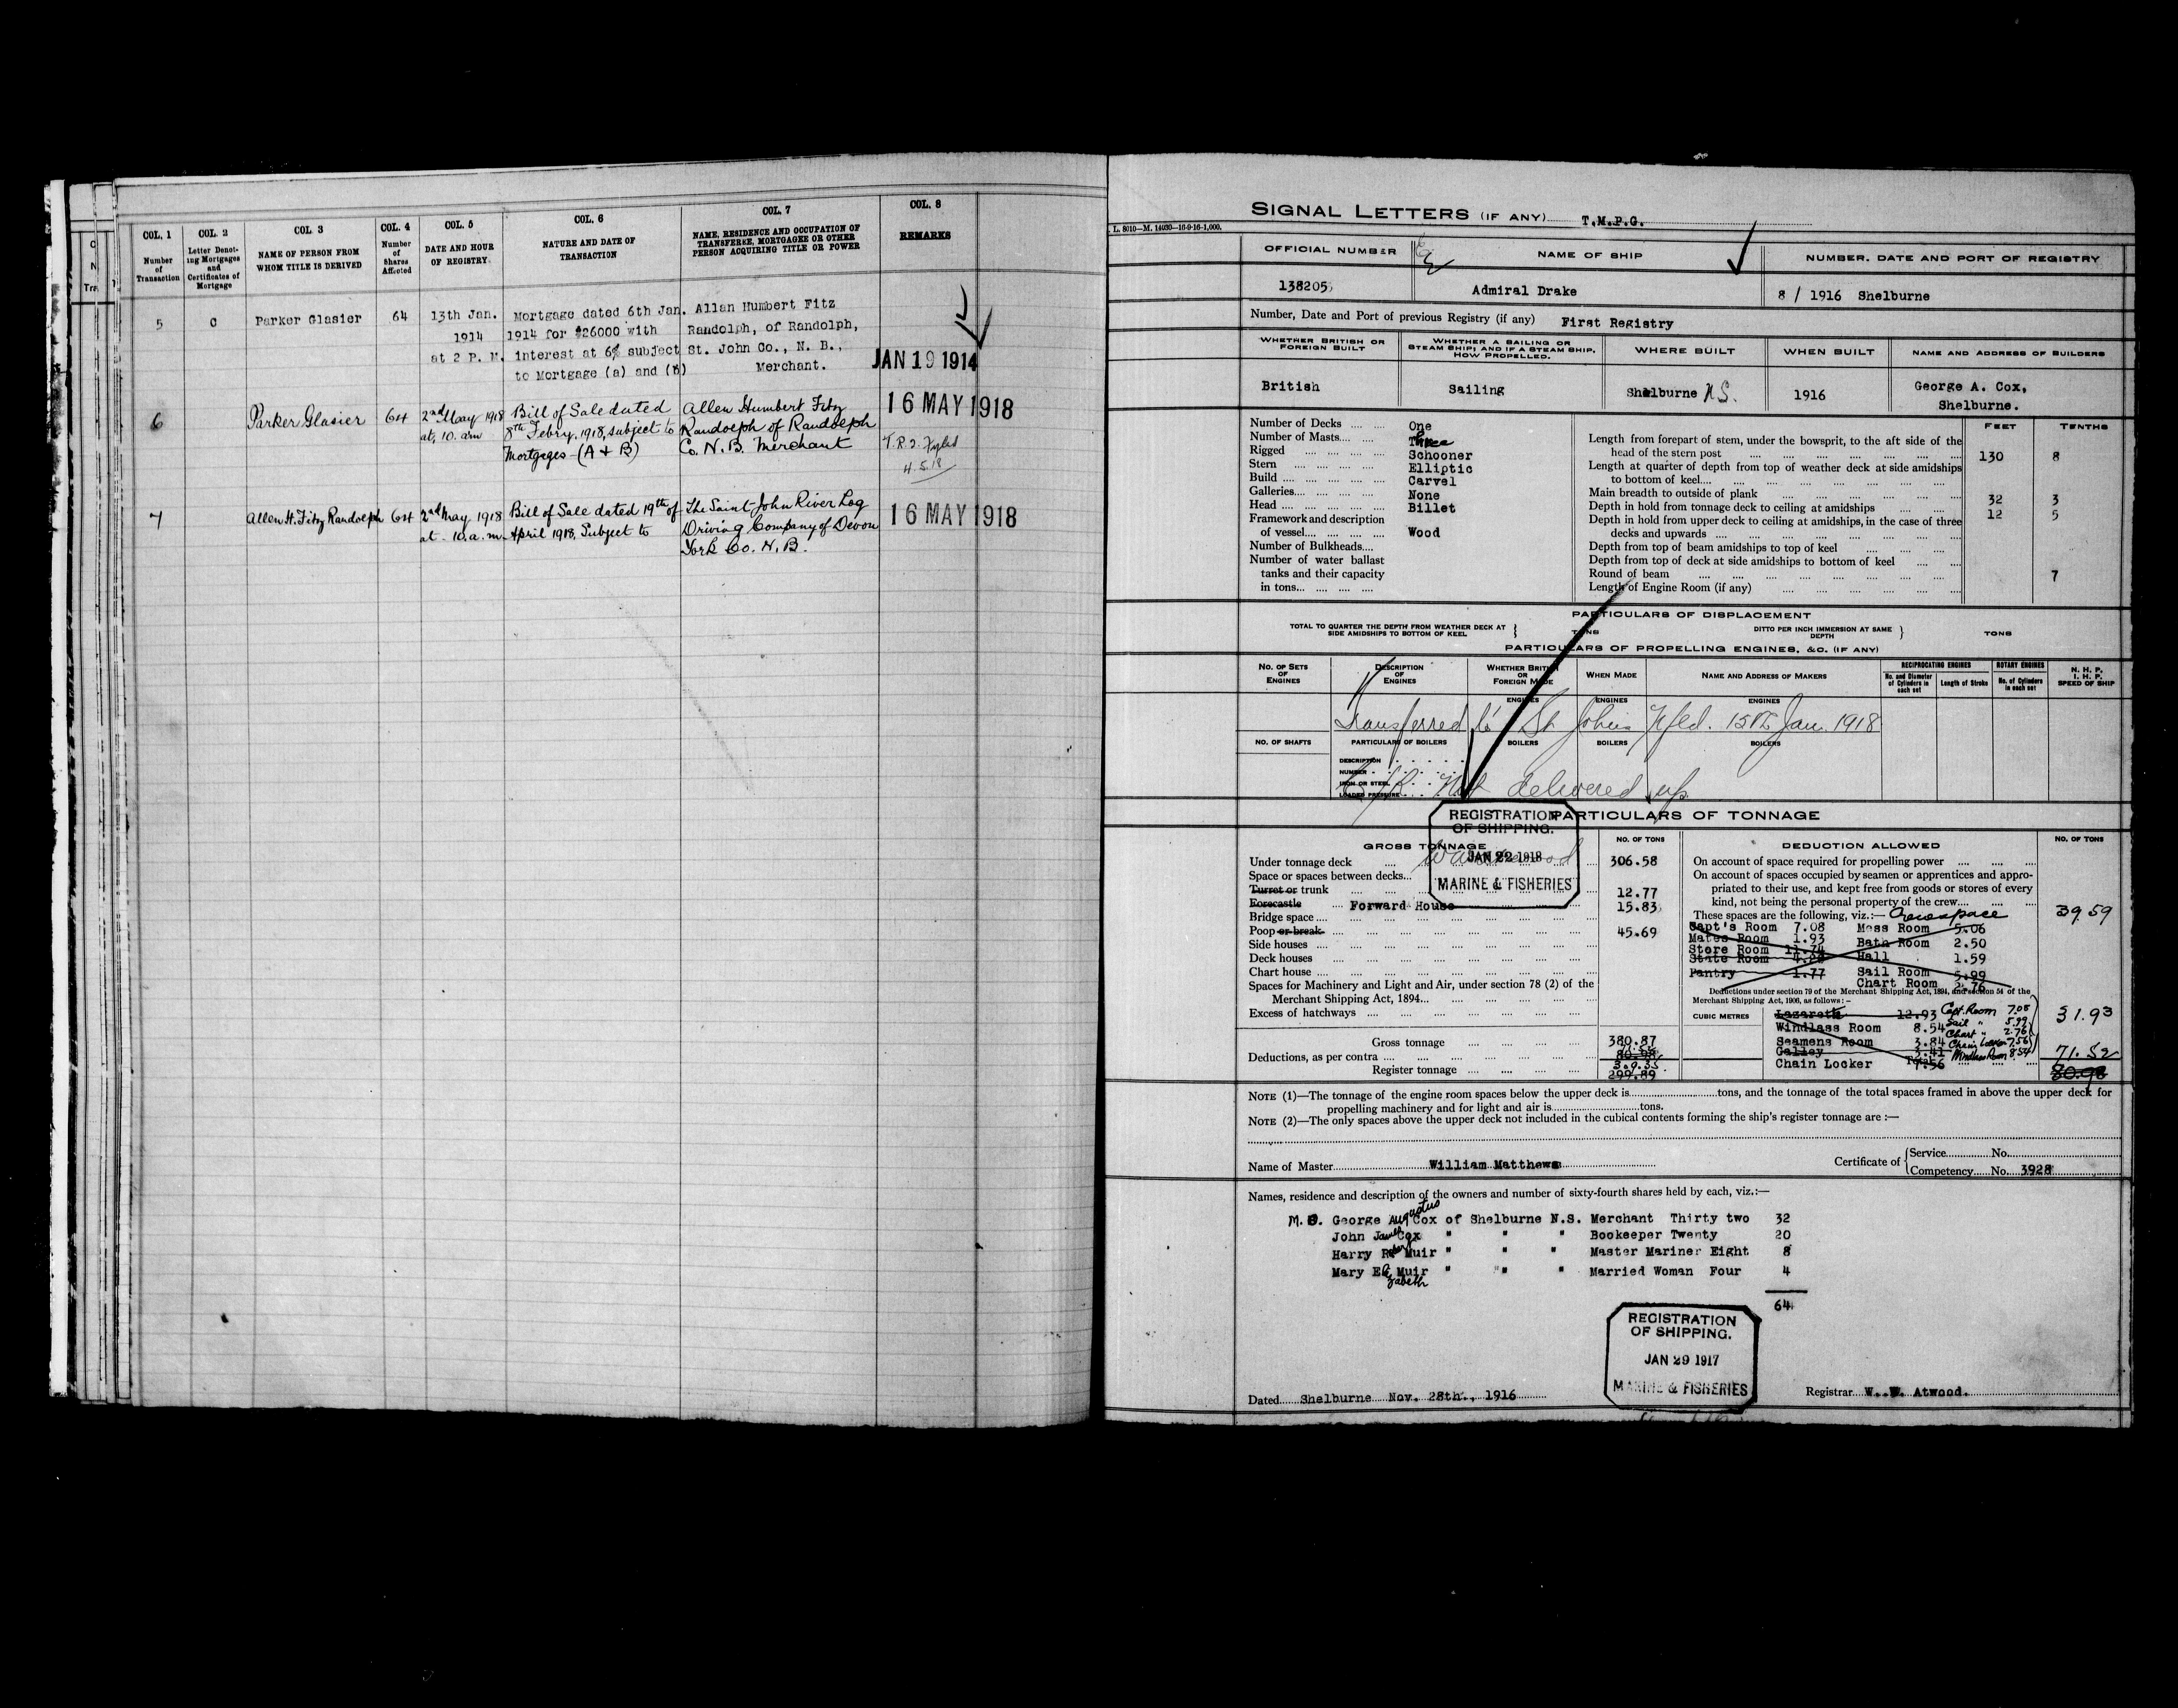 COL. 1 COL. 2 COL. 3 COL. 4 COL. 5 COL. 6 COL. 7 COL. 8
Number of Transaction
Letter Denoting Mortgages and Certificates of Mortgage
NAME OF PERSON FROM WHOM TITLE IS DERIVED
Number of Shares Affected
DATE AND HOUR OF REGISTRY
NATURE AND DATE OF TRANSACTION
NAME, RESIDENCE AND OCCUPATION OF TRANSFEREE, MORTGAGEE OR OTHER PERSON ACQUIRING TITLE OR POWER
REMARKS
5 C Parker Glasier 64 13th Jan. Mortgage dated 6th Jan. Allan Humbert Fitz
1914 1914 for $26000 with Randolph, of Randolph,
at 2 P. M. interest at 6% subject St. John Co., N. B.,
to Mortgage (a) and (B) Merchant. JAN 19 1914
6 Parker Glasier 64 2nd May 1918 Bill of Sale dated Allen Humbert Fitz 16 MAY 1918
at 10. am 8th Febry. 1918, subject to Randolph of Randolph
Mortgages (A & B) Co. N. B. Merchant
4.5.18
7 Allen H. Fitz Randolph 64 2nd May 1918 Bill of Sale dated 19th of The Saint John River Log 16 MAY 1918
at 10. a. m. April 1918, Subject to Driving Company of Devon
York Co. N. B.
SIGNAL LETTERS (IF ANY) T.M.P.G.
L. 8010—M. 14030—16-9-16-1,000.
OFFICIAL NUMBER NAME OF SHIP NUMBER, DATE AND PORT OF REGISTRY
138205 Admiral Drake 8 / 1916 Shelburne
Number, Date and Port of previous Registry (if any) First Registry
WHETHER BRITISH OR FOREIGN BUILT
WHETHER A SAILING OR STEAM SHIP; AND IF A STEAM SHIP, HOW PROPELLED.
WHERE BUILT WHEN BUILT NAME AND ADDRESS OF BUILDERS
British Sailing Shelburne N.S. 1916 George A. Cox,
Shelburne.
Number of Decks One
Number of Masts Three
Rigged Schooner
Stern Elliptic
Build Carvel
Galleries None
Head Billet
Framework and description
of vessel Wood
Number of Bulkheads
Number of water ballast
tanks and their capacity
in tons
FEET TENTHS
Length from forepart of stem, under the bowsprit, to the aft side of the
head of the stern post 130 8
Length at quarter of depth from top of weather deck at side amidships
to bottom of keel
Main breadth to outside of plank 32 3
Depth in hold from tonnage deck to ceiling at amidships 12 5
Depth in hold from upper deck to ceiling at amidships, in the case of three
decks and upwards
Depth from top of beam amidships to top of keel
Depth from top of deck at side amidships to bottom of keel
Round of beam 7
Length of Engine Room (if any)
PARTICULARS OF DISPLACEMENT
TOTAL TO QUARTER THE DEPTH FROM WEATHER DECK AT SIDE AMIDSHIPS TO BOTTOM OF KEEL } TONS
DITTO PER INCH IMMERSION AT SAME DEPTH } TONS
PARTICULARS OF PROPELLING ENGINES, &C. (IF ANY)
No. of Sets of Engines
Description of Engines
Whether British or Foreign Made
When Made
Name and Address of Makers
RECIPROCATING ENGINES
No. and Diameter of Cylinders in each set
Length of Stroke
ROTARY ENGINES
No. of Cylinders in each set
N. H. P.
I. H. P.
SPEED OF SHIP
ENGINES ENGINES ENGINES
Transferred to St Johns Nfld. 15th Jan. 1918
NO. OF SHAFTS PARTICULARS OF BOILERS BOILERS BOILERS BOILERS
DESCRIPTION
NUMBER
IRON OR STEEL
LOADED PRESSURE
Not delivered up
REGISTRATION
OF SHIPPING.
JAN 22 1918
MARINE & FISHERIES
PARTICULARS OF TONNAGE
GROSS TONNAGE NO. OF TONS
Under tonnage deck 306.58
Space or spaces between decks
Turret or trunk 12.77
Forecastle Forward House 15.83
Bridge space
Poop or break 45.69
Side houses
Deck houses
Chart house
Spaces for Machinery and Light and Air, under section 78 (2) of the
Merchant Shipping Act, 1894
Excess of hatchways
Gross tonnage 380.87
Deductions, as per contra 80.98
Register tonnage
299.89
DEDUCTION ALLOWED NO. OF TONS
On account of space required for propelling power
On account of spaces occupied by seamen or apprentices and appro-
priated to their use, and kept free from goods or stores of every
kind, not being the personal property of the crew
These spaces are the following, viz.:— Crewspace 39.59
Capt's Room 7.08 Mess Room 5.06
Mates Room 1.93 Bath Room 2.50
Store Room 11.74 Hall 1.59
State Room
Pantry 1.77 Sail Room 5.99
Chart Room 2.76
Deductions under section 79 of the Merchant Shipping Act, 1894, and section 54 of the
Merchant Shipping Act, 1906, as follows:—
CUBIC METRES
Lazarette 12.93 Capt. Room 7.08 31.93
Windlass Room 8.54 Sail " 5.99
Seamens Room 3.84 Chart " 2.76
Galley 3.41 Chain Locker 7.56
Chain Locker 7.56 Windlass Room 8.54 71.52
80.98
NOTE (1)—The tonnage of the engine room spaces below the upper deck is tons, and the tonnage of the total spaces framed in above the upper deck for
propelling machinery and for light and air is tons.
NOTE (2)—The only spaces above the upper deck not included in the cubical contents forming the ship's register tonnage are :—
Name of Master William Matthews Certificate of { Service No.
Competency No. 3928
Names, residence and description of the owners and number of sixty-fourth shares held by each, viz.:—
M. O. George Augustus Cox of Shelburne N.S. Merchant Thirty two 32
John James Cox " " " Bookeeper Twenty 20
Harry Muir " " " Master Mariner Eight 8
Mary Elizabeth Muir " " " Married Woman Four 4
64
REGISTRATION
OF SHIPPING.
JAN 29 1917
MARINE & FISHERIES
Dated Shelburne Nov. 28th., 1916 Registrar W. W. Atwood.